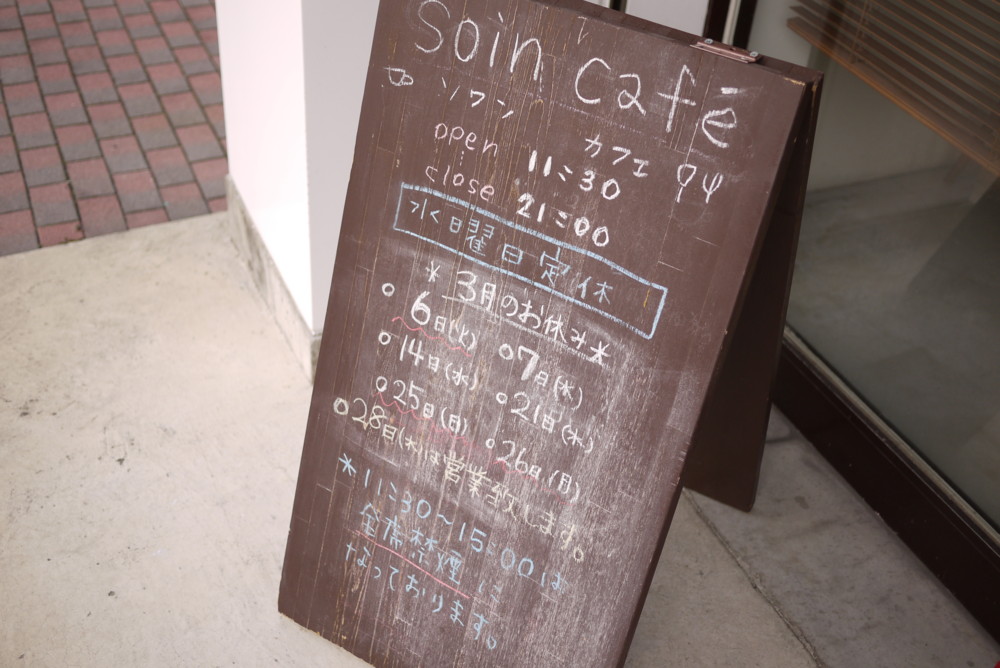 soin café
ソワン カフェ
open 11:30
close 21:00
水曜日定休
* 3月のお休み *
○6日(火) ○7日(水)
○14日(水) ○21日(水)
○25日(日) ○26日(月)
○28日(水)は営業致します。
* 11:30〜15:00は
全席禁煙に
なっております。